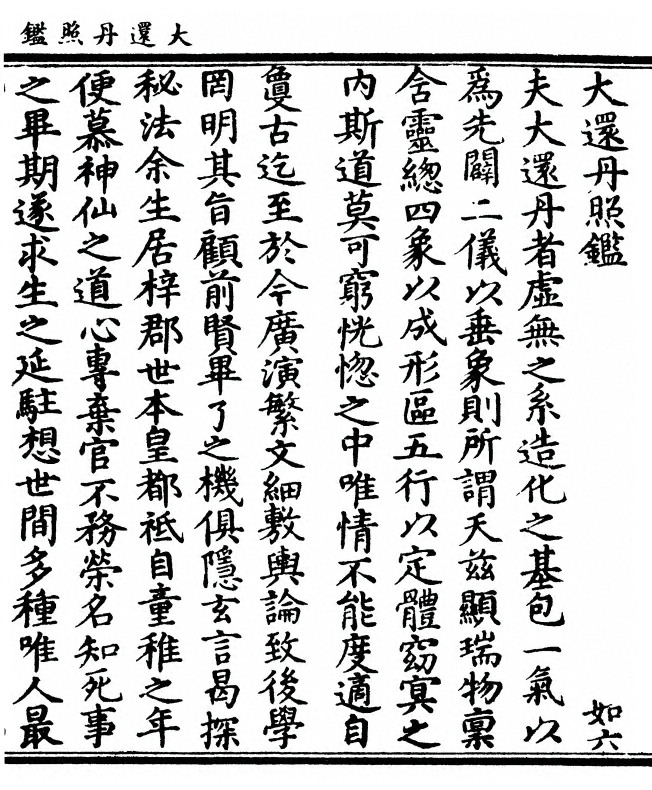 大還丹照鑑
大還丹照鑑
如六
夫大還丹者虛無之系造化之基包一氣以
爲先闢二儀以垂象則所謂天兹顯瑞物稟
含靈總四象以成形區五行以定體窈冥之
内斯道莫可窮恍惚之中唯情不能度適自
敻古迄至於今廣演繁文細敷輿論致後學
罔明其旨顧前賢畢了之機俱隱玄言曷探
秘法余生居梓郡世本皇都祗自童稚之年
便慕神仙之道心專棄官不務榮名知死事
之畢期遂求生之延駐想世間多種唯人最